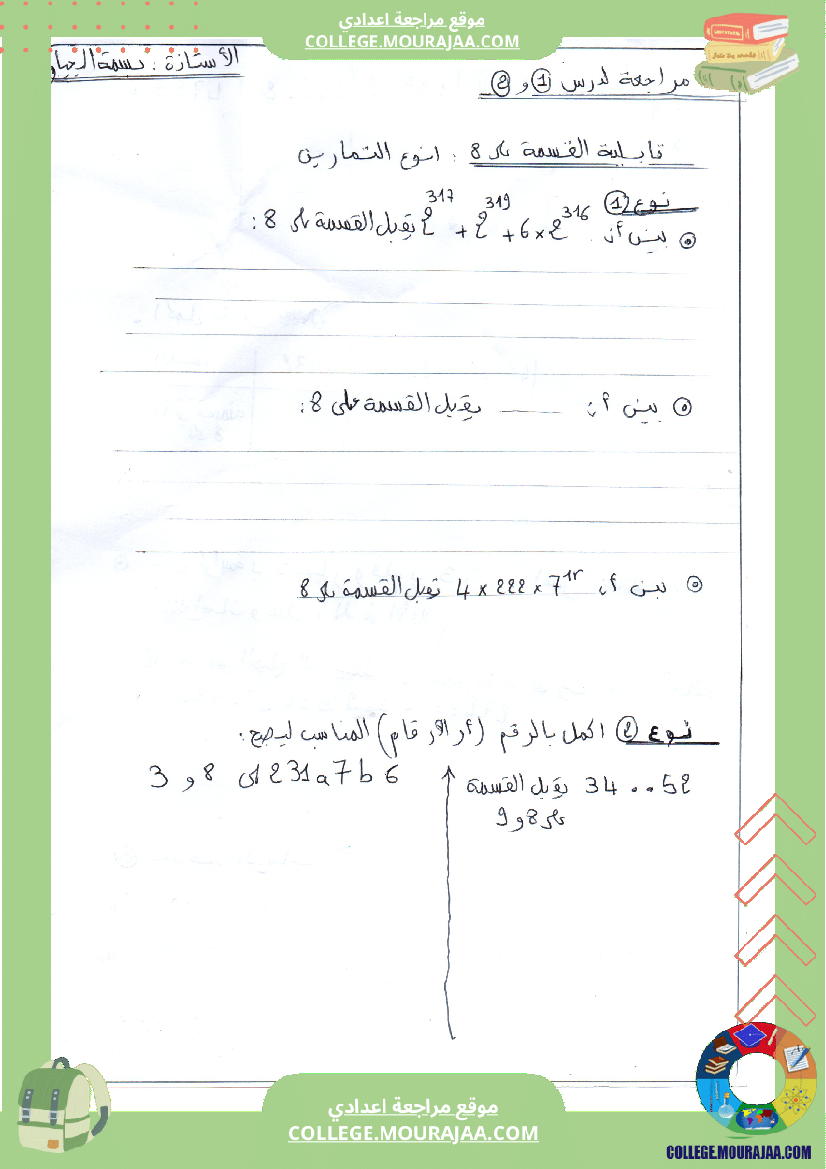 موقع مراجعة اعدادي
COLLEGE.MOURAJAA.COM
الأستاذة : بسمة
مراجعة لدرس ① و ②
قابلية القسمة على 8 : انوع التمارين
نوع ①
بين أن 2^317 + 2^319 + 6 × 2^316 يقبل القسمة على 8 :
بين أن ــــــــ يقبل القسمة على 8 :
بين أن 4 × 222 × 7^12 تقبل القسمة على 8
نوع ② اكمل بالرقم (أو الأرقام) المناسب ليصح :
34 .. 52 يقبل القسمة
على 8 و 9
231a7b6 على 8 و 3
موقع مراجعة اعدادي
COLLEGE.MOURAJAA.COM
COLLEGE.MOURAJAA.COM